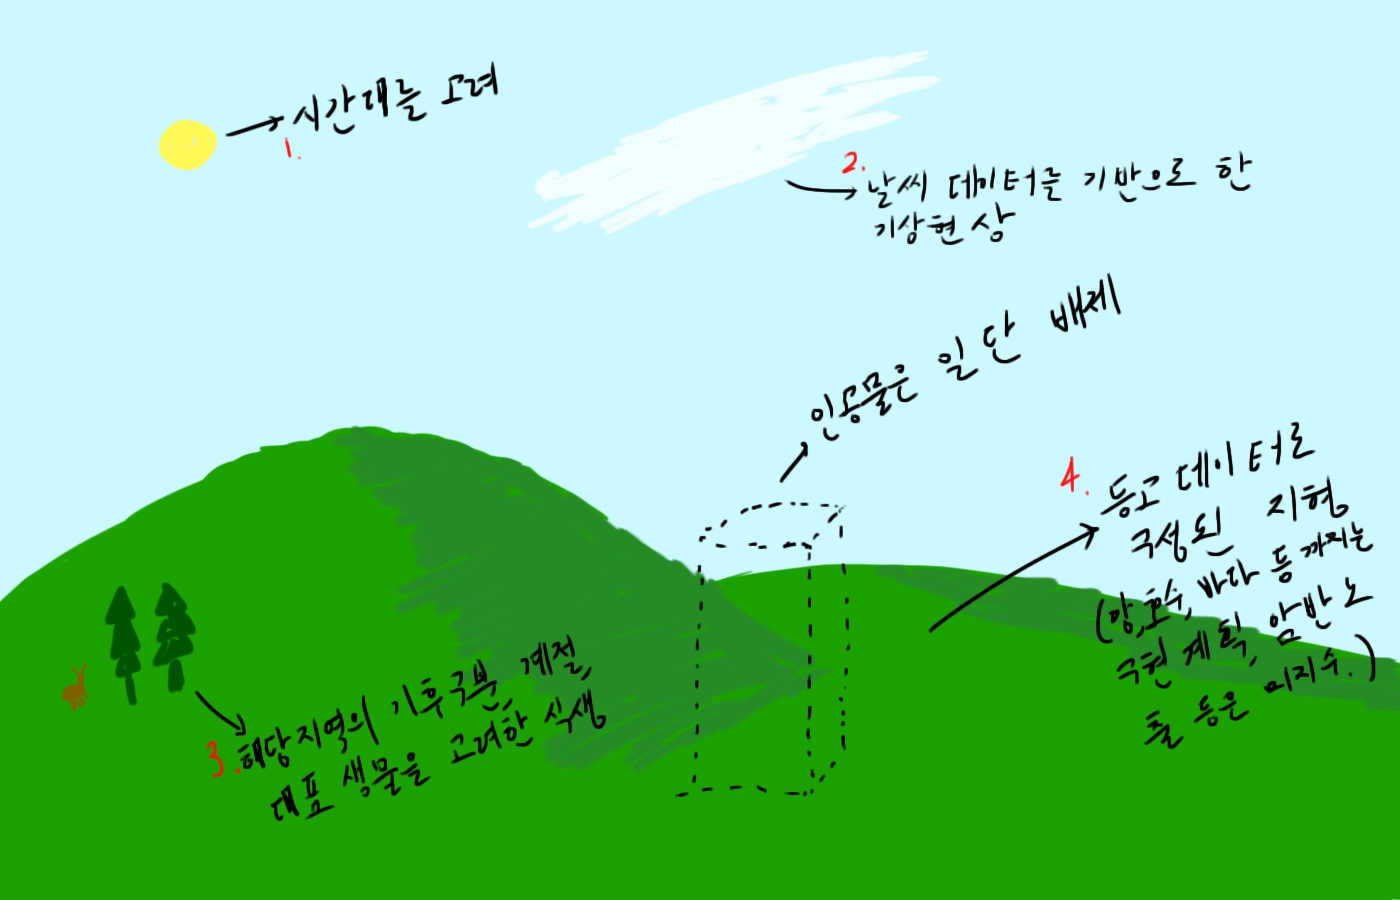 1. 시간대를 고려
2. 날씨 데이터를 기반으로 한
기상현상
인공물은 일단 배제
4. 등고 데이터로
구성된 지형
(강,호수,바다 등 까지는
구현 계획, 암반 노
출 등은 미지수.)
3. 해당지역의 기후구분, 계절,
대표 생물을 고려한 식생